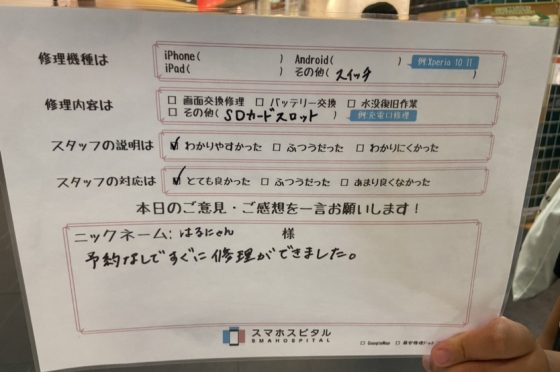 修理機種は
iPhone( ) Android( ) 例:Xperia 10 Ⅱ
iPad( ) その他( スイッチ )
修理内容は
□ 画面交換修理 □ バッテリー交換 □ 水没復旧作業
□ その他( SDカードスロット ) 例:充電口修理
スタッフの説明は ☑ わかりやすかった □ ふつうだった □ わかりにくかった
スタッフの対応は ☑ とても良かった □ ふつうだった □ あまり良くなかった
本日のご意見・ご感想を一言お願いします!
ニックネーム: はるにゃん 様
予約なしですぐに修理ができました。
スマホスピタル
SMAHOSPITAL
□ GoogleMap